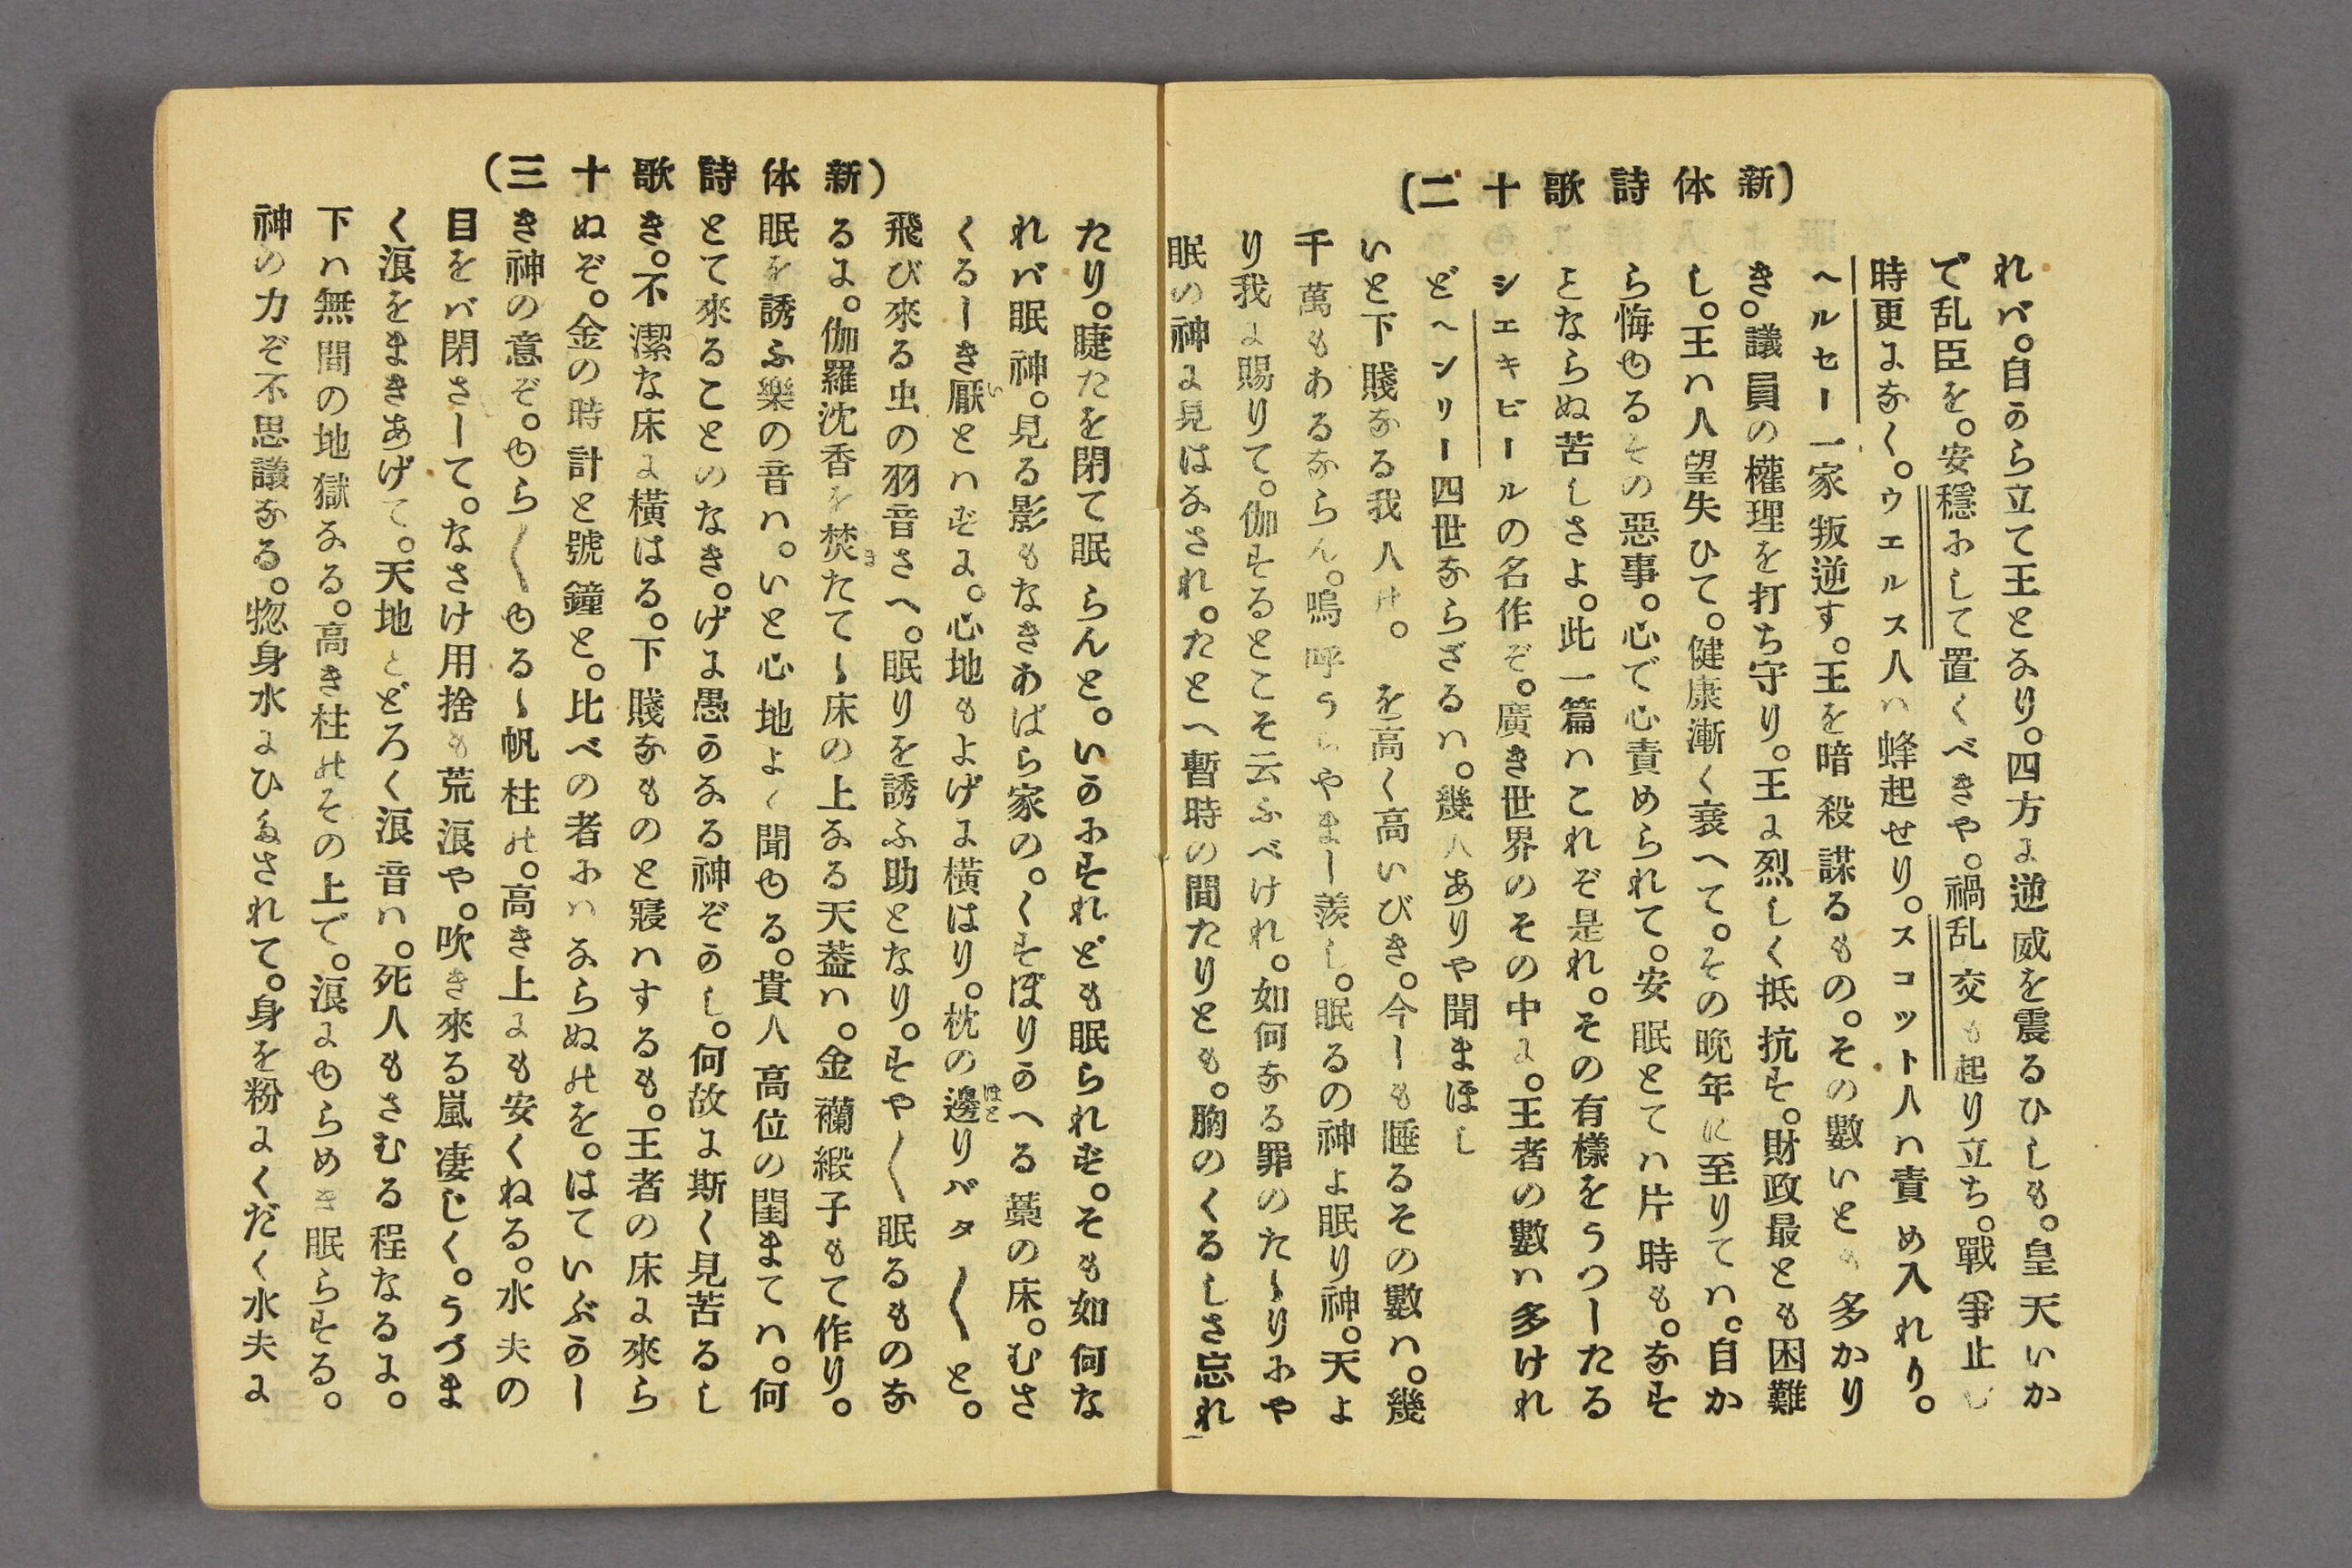 (新体詩歌十二)
れバ。自のら立て王となり。四方に逆威を震るひしも。皇天いか
で乱臣を。安穩にして置くべきや。禍乱交も起り立ち。戰爭止む
時更になく。ウエルス人ハ蜂起せり。スコット人ハ責め入れり。
ヘルセー一家叛逆す。王を暗殺謀るもの。その數いとも多かり
き。議員の權理を打ち守り。王に烈しく抵抗す。財政最とも困難
し。王ハ人望失ひて。健康漸く衰へて。その晩年に至りてハ。自か
ら悔ゆるその惡事。心で心責められて。安眠とてハ片時も。なす
ことならぬ苦しさよ。此一篇ハこれぞ是れ。その有樣をうつーたる
シエキビールの名作ぞ。廣き世界のその中に。王者の數ハ多けれ
どヘンリー四世ならざるハ。幾人ありや聞まほし
いと下賤なる我人は。を高く高いびき。今ーも睡るその數ハ。幾
千萬もあるならん。嗚呼うらやまー羨し。眠るの神よ眠り神。天よ
り我に賜りて。伽するとこそ云ふべけれ。如何なる罪のたゝりにや
眠の神に見はなされ。たとへ暫時の間たりとも。胸のくるしさ忘れ
(新体詩歌十三)
たり。睫たを閉て眠らんと。いかにすれども眠られず。そも如何な
れバ眠神。見る影もなきあばら家の。くすぼりかへる藁の床。むさ
くるーき厭とハずに。心地もよげに横はり。枕の邊りバタ〱と。
飛び來る虫の羽音さへ。眠りを誘ふ助となり。すや〱眠るものな
るに。伽羅沈香を焚たてゝ床の上なる天葢ハ。金襴緞子もて作り。
眠を誘ふ樂の音ハ。いと心地よく聞ゆる。貴人高位の閨まてハ。何
とて來ることのなき。げに愚かなる神ぞかし。何故に斯く見苦るし
き。不潔な床に橫はる。下賤なものと寢ハするも。王者の床に來ら
ぬぞ。金の時計と號鐘と。比べの者にハならぬはを。はていぶかー
き神の意ぞ。ゆら〱ゆるゝ帆柱は。高き上にも安くねる。水夫の
目をバ閉さーて。なさけ用捨も荒浪や。吹き來る嵐凄じく。うづま
く浪をまきあげて。天地とどろく浪音ハ。死人もさむる程なるに。
下ハ無間の地獄なる。高き柱はその上で。浪にゆらめき眠らする。
神の力ぞ不思議なる。惣身水にひたされて。身を粉にくだく水夫に